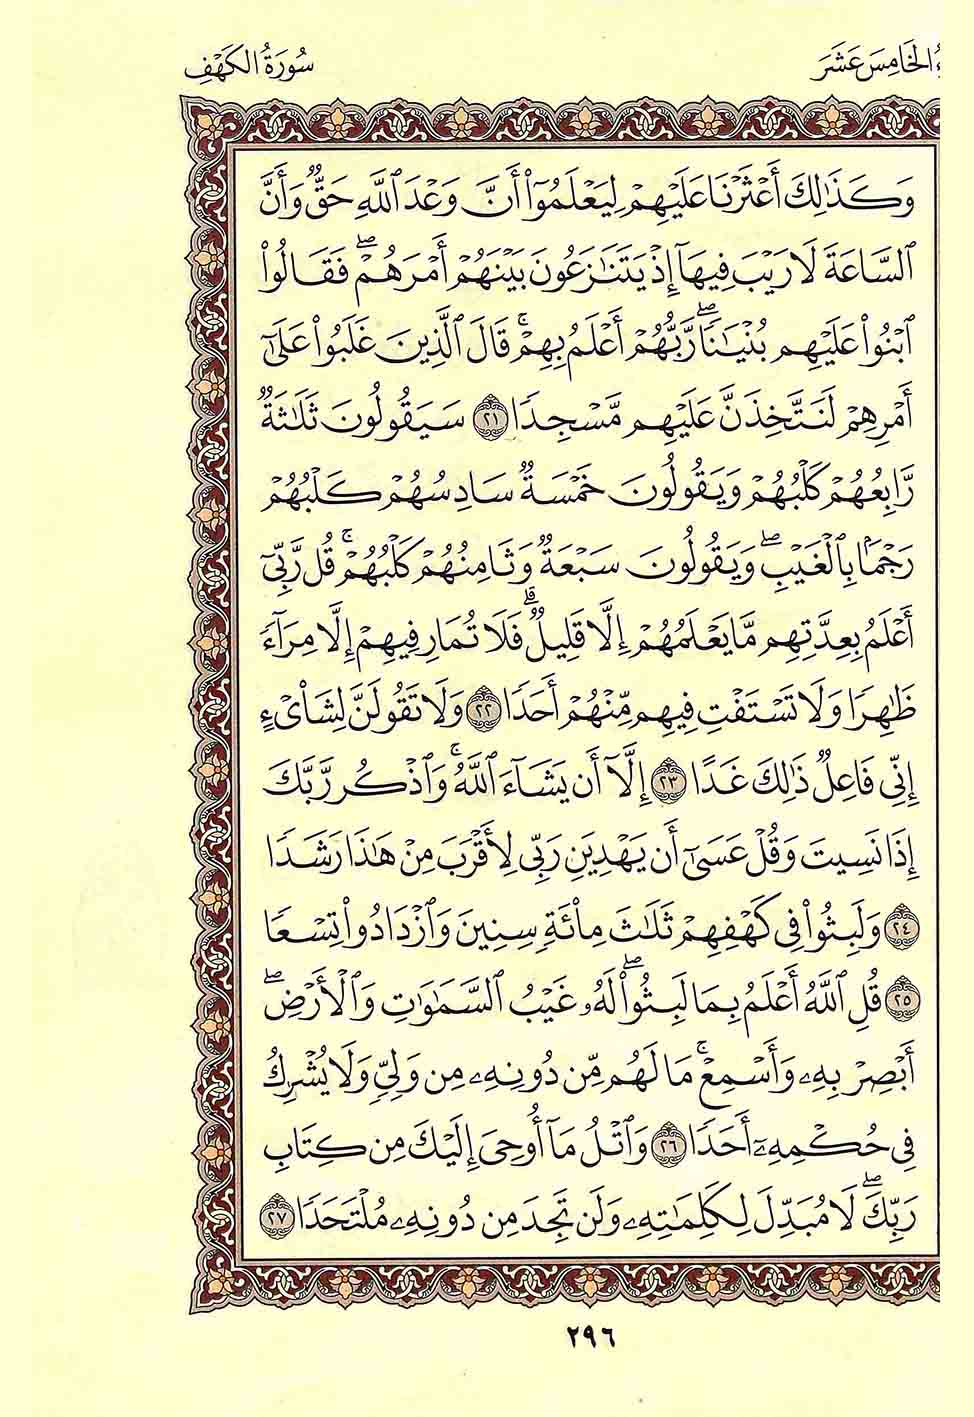 ءُ الْخَامِسَ عَشَرَ
سُورَةُ الكَهْفِ
وَكَذَٰلِكَ أَعْثَرْنَا عَلَيْهِمْ لِيَعْلَمُوٓا۟ أَنَّ وَعْدَ ٱللَّهِ حَقٌّ وَأَنَّ
ٱلسَّاعَةَ لَا رَيْبَ فِيهَآ إِذْ يَتَنَٰزَعُونَ بَيْنَهُمْ أَمْرَهُمْ ۖ فَقَالُوا۟
ٱبْنُوا۟ عَلَيْهِم بُنْيَٰنًا ۖ رَّبُّهُمْ أَعْلَمُ بِهِمْ ۚ قَالَ ٱلَّذِينَ غَلَبُوا۟ عَلَىٰٓ
أَمْرِهِمْ لَنَتَّخِذَنَّ عَلَيْهِم مَّسْجِدًا ٢١ سَيَقُولُونَ ثَلَٰثَةٌ
رَّابِعُهُمْ كَلْبُهُمْ وَيَقُولُونَ خَمْسَةٌ سَادِسُهُمْ كَلْبُهُمْ
رَجْمًۢا بِٱلْغَيْبِ ۖ وَيَقُولُونَ سَبْعَةٌ وَثَامِنُهُمْ كَلْبُهُمْ ۚ قُل رَّبِّىٓ
أَعْلَمُ بِعِدَّتِهِم مَّا يَعْلَمُهُمْ إِلَّا قَلِيلٌ ۗ فَلَا تُمَارِ فِيهِمْ إِلَّا مِرَآءً
ظَٰهِرًا وَلَا تَسْتَفْتِ فِيهِم مِّنْهُمْ أَحَدًا ٢٢ وَلَا تَقُولَنَّ لِشَا۟ىْءٍ
إِنِّى فَاعِلٌ ذَٰلِكَ غَدًا ٢٣ إِلَّآ أَن يَشَآءَ ٱللَّهُ ۚ وَٱذْكُر رَّبَّكَ
إِذَا نَسِيتَ وَقُلْ عَسَىٰٓ أَن يَهْدِيَنِ رَبِّى لِأَقْرَبَ مِنْ هَٰذَا رَشَدًا
٢٤ وَلَبِثُوا۟ فِى كَهْفِهِمْ ثَلَٰثَ مِا۟ئَةٍ سِنِينَ وَٱزْدَادُوا۟ تِسْعًا
٢٥ قُلِ ٱللَّهُ أَعْلَمُ بِمَا لَبِثُوا۟ ۖ لَهُۥ غَيْبُ ٱلسَّمَٰوَٰتِ وَٱلْأَرْضِ ۖ
أَبْصِرْ بِهِۦ وَأَسْمِعْ ۚ مَا لَهُم مِّن دُونِهِۦ مِن وَلِىٍّ وَلَا يُشْرِكُ
فِى حُكْمِهِۦٓ أَحَدًا ٢٦ وَٱتْلُ مَآ أُوحِىَ إِلَيْكَ مِن كِتَابِ
رَبِّكَ ۖ لَا مُبَدِّلَ لِكَلِمَٰتِهِۦ وَلَن تَجِدَ مِن دُونِهِۦ مُلْتَحَدًا ٢٧
٢٩٦